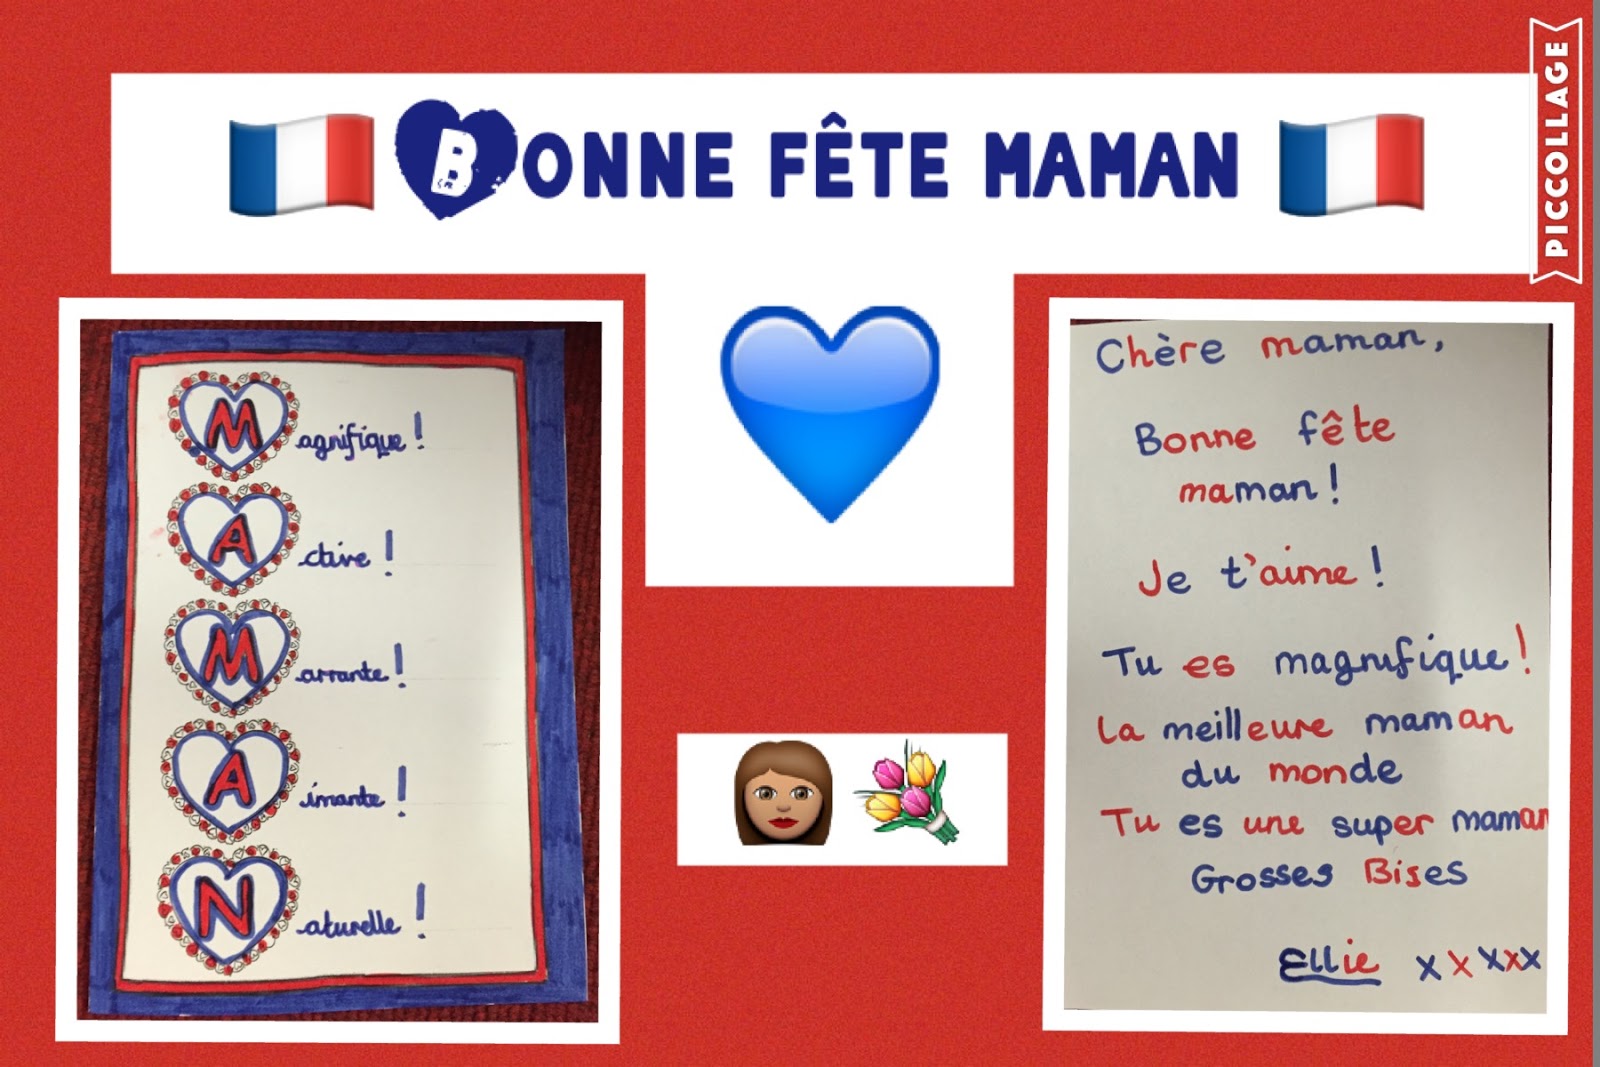 BONNE FÊTE MAMAN
PICCOLLAGE
Magnifique !
Active !
Marrante !
Aimante !
Naturelle !
Chère maman,
Bonne fête
maman !
Je t'aime !
Tu es magnifique !
La meilleure maman
du monde
Tu es une super maman
Grosses Bises
Ellie xxxxx